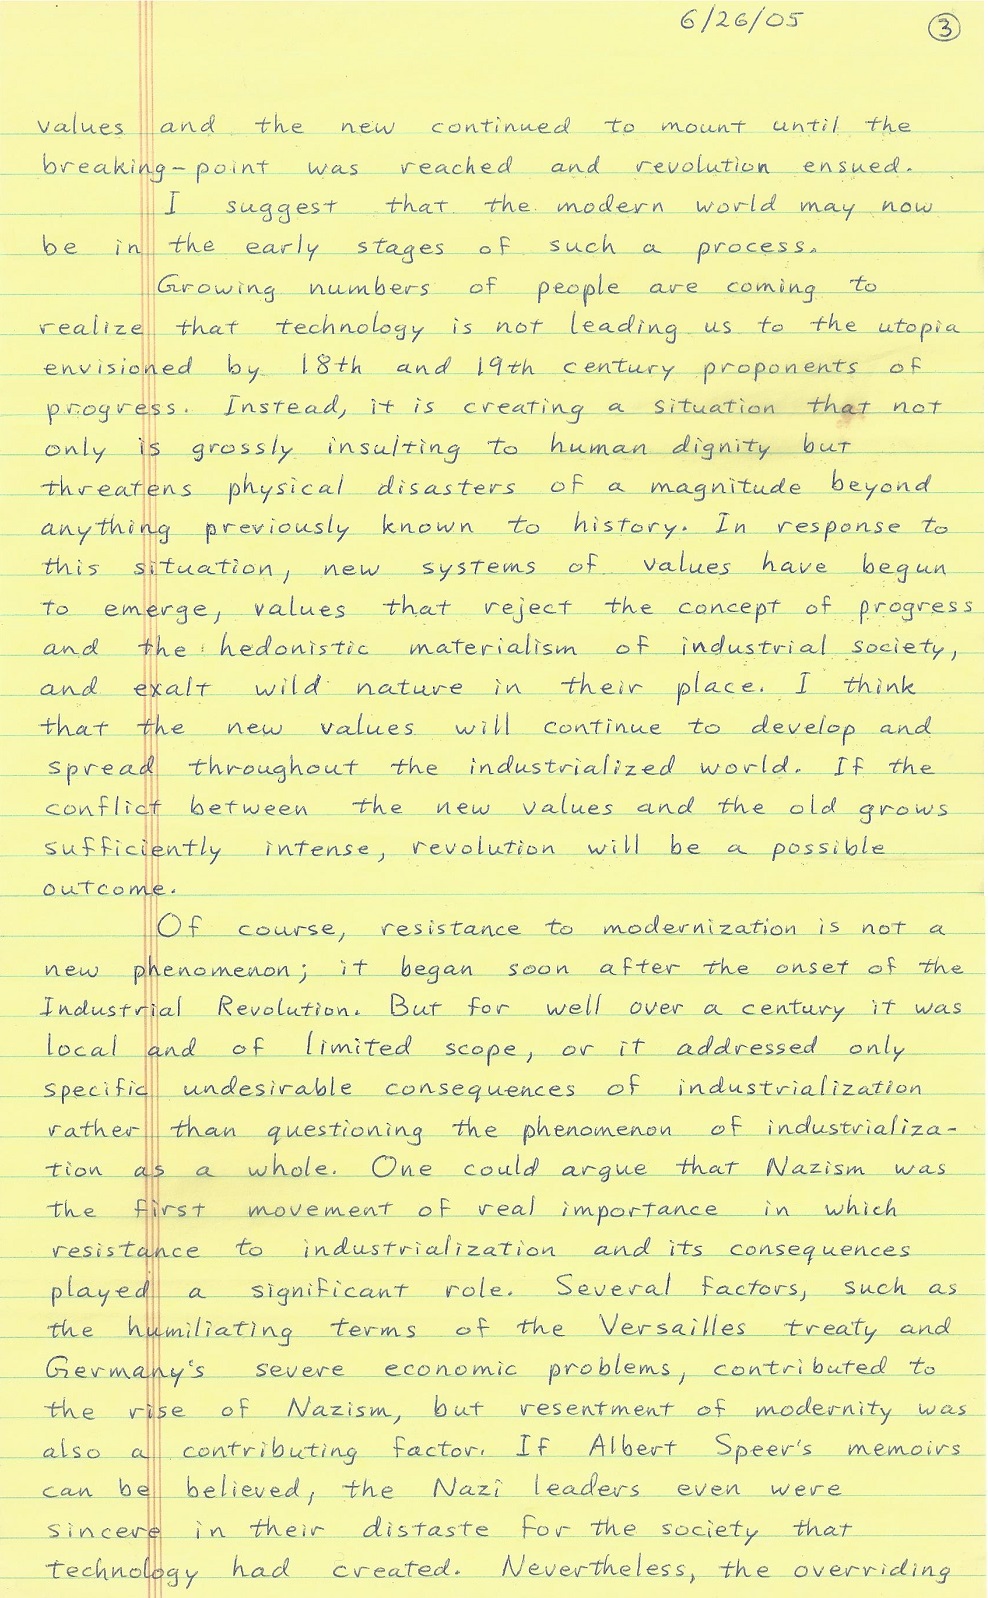 6/26/05 3
values and the new continued to mount until the
breaking-point was reached and revolution ensued.
I suggest that the modern world may now
be in the early stages of such a process.
Growing numbers of people are coming to
realize that technology is not leading us to the utopia
envisioned by 18th and 19th century proponents of
progress. Instead, it is creating a situation that not
only is grossly insulting to human dignity but
threatens physical disasters of a magnitude beyond
anything previously known to history. In response to
this situation, new systems of values have begun
to emerge, values that reject the concept of progress
and the hedonistic materialism of industrial society,
and exalt wild nature in their place. I think
that the new values will continue to develop and
spread throughout the industrialized world. If the
conflict between the new values and the old grows
sufficiently intense, revolution will be a possible
outcome.
Of course, resistance to modernization is not a
new phenomenon; it began soon after the onset of the
Industrial Revolution. But for well over a century it was
local and of limited scope, or it addressed only
specific undesirable consequences of industrialization
rather than questioning the phenomenon of industrializa-
tion as a whole. One could argue that Nazism was
the first movement of real importance in which
resistance to industrialization and its consequences
played a significant role. Several factors, such as
the humiliating terms of the Versailles treaty and
Germany's severe economic problems, contributed to
the rise of Nazism, but resentment of modernity was
also a contributing factor. If Albert Speer's memoirs
can be believed, the Nazi leaders even were
sincere in their distaste for the society that
technology had created. Nevertheless, the overriding